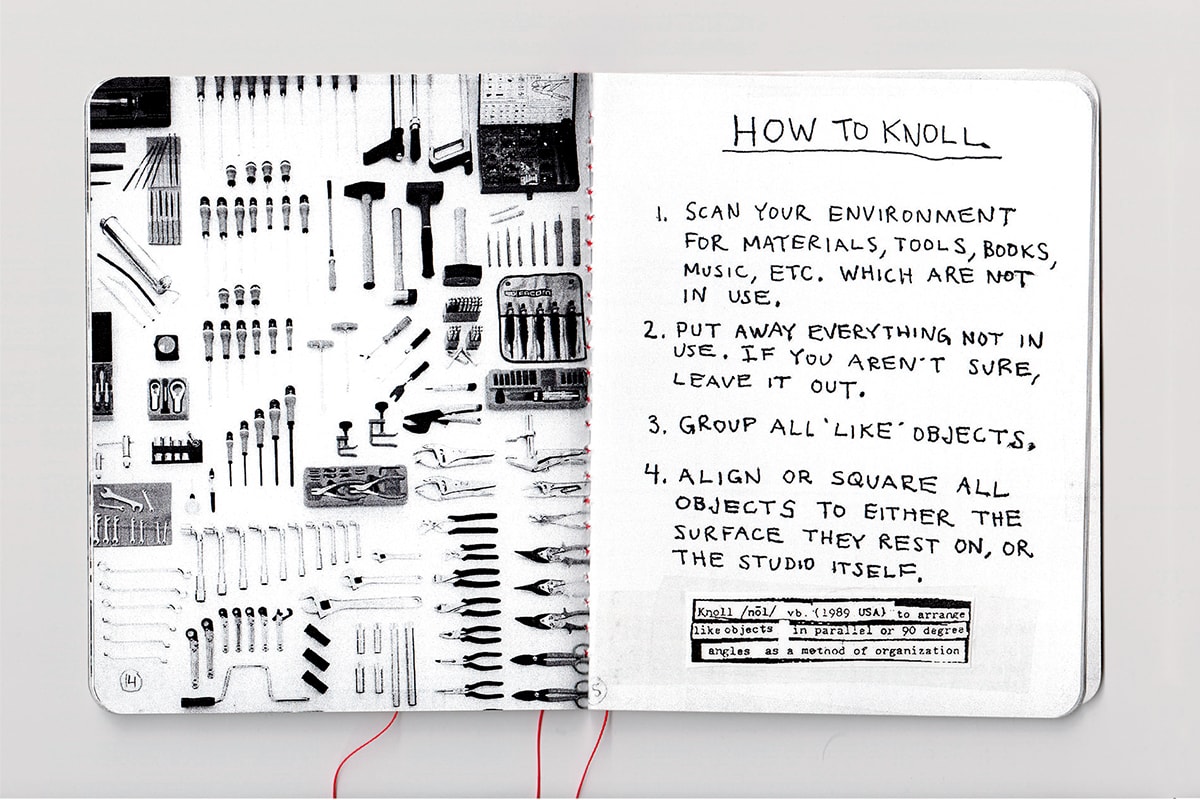 14
HOW TO KNOLL
1. SCAN YOUR ENVIRONMENT
FOR MATERIALS, TOOLS, BOOKS,
MUSIC, ETC. WHICH ARE NOT
IN USE.
2. PUT AWAY EVERYTHING NOT IN
USE. IF YOU AREN'T SURE,
LEAVE IT OUT.
3. GROUP ALL 'LIKE' OBJECTS.
4. ALIGN OR SQUARE ALL
OBJECTS TO EITHER THE
SURFACE THEY REST ON, OR
THE STUDIO ITSELF.
Knoll /nōl/ vb. (1989 USA) to arrange
like objects in parallel or 90 degree
angles as a method of organization